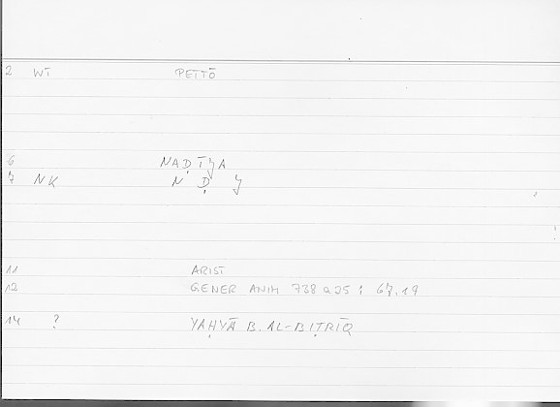 2 WT PETTŌ
6 NAḌIǦA
7 NK N Ḍ Ǧ
11 ARIST
12 GENER ANIM 738 a25 : 67.19
14 ? YAḤYĀ B. AL-BIṬRĪQ